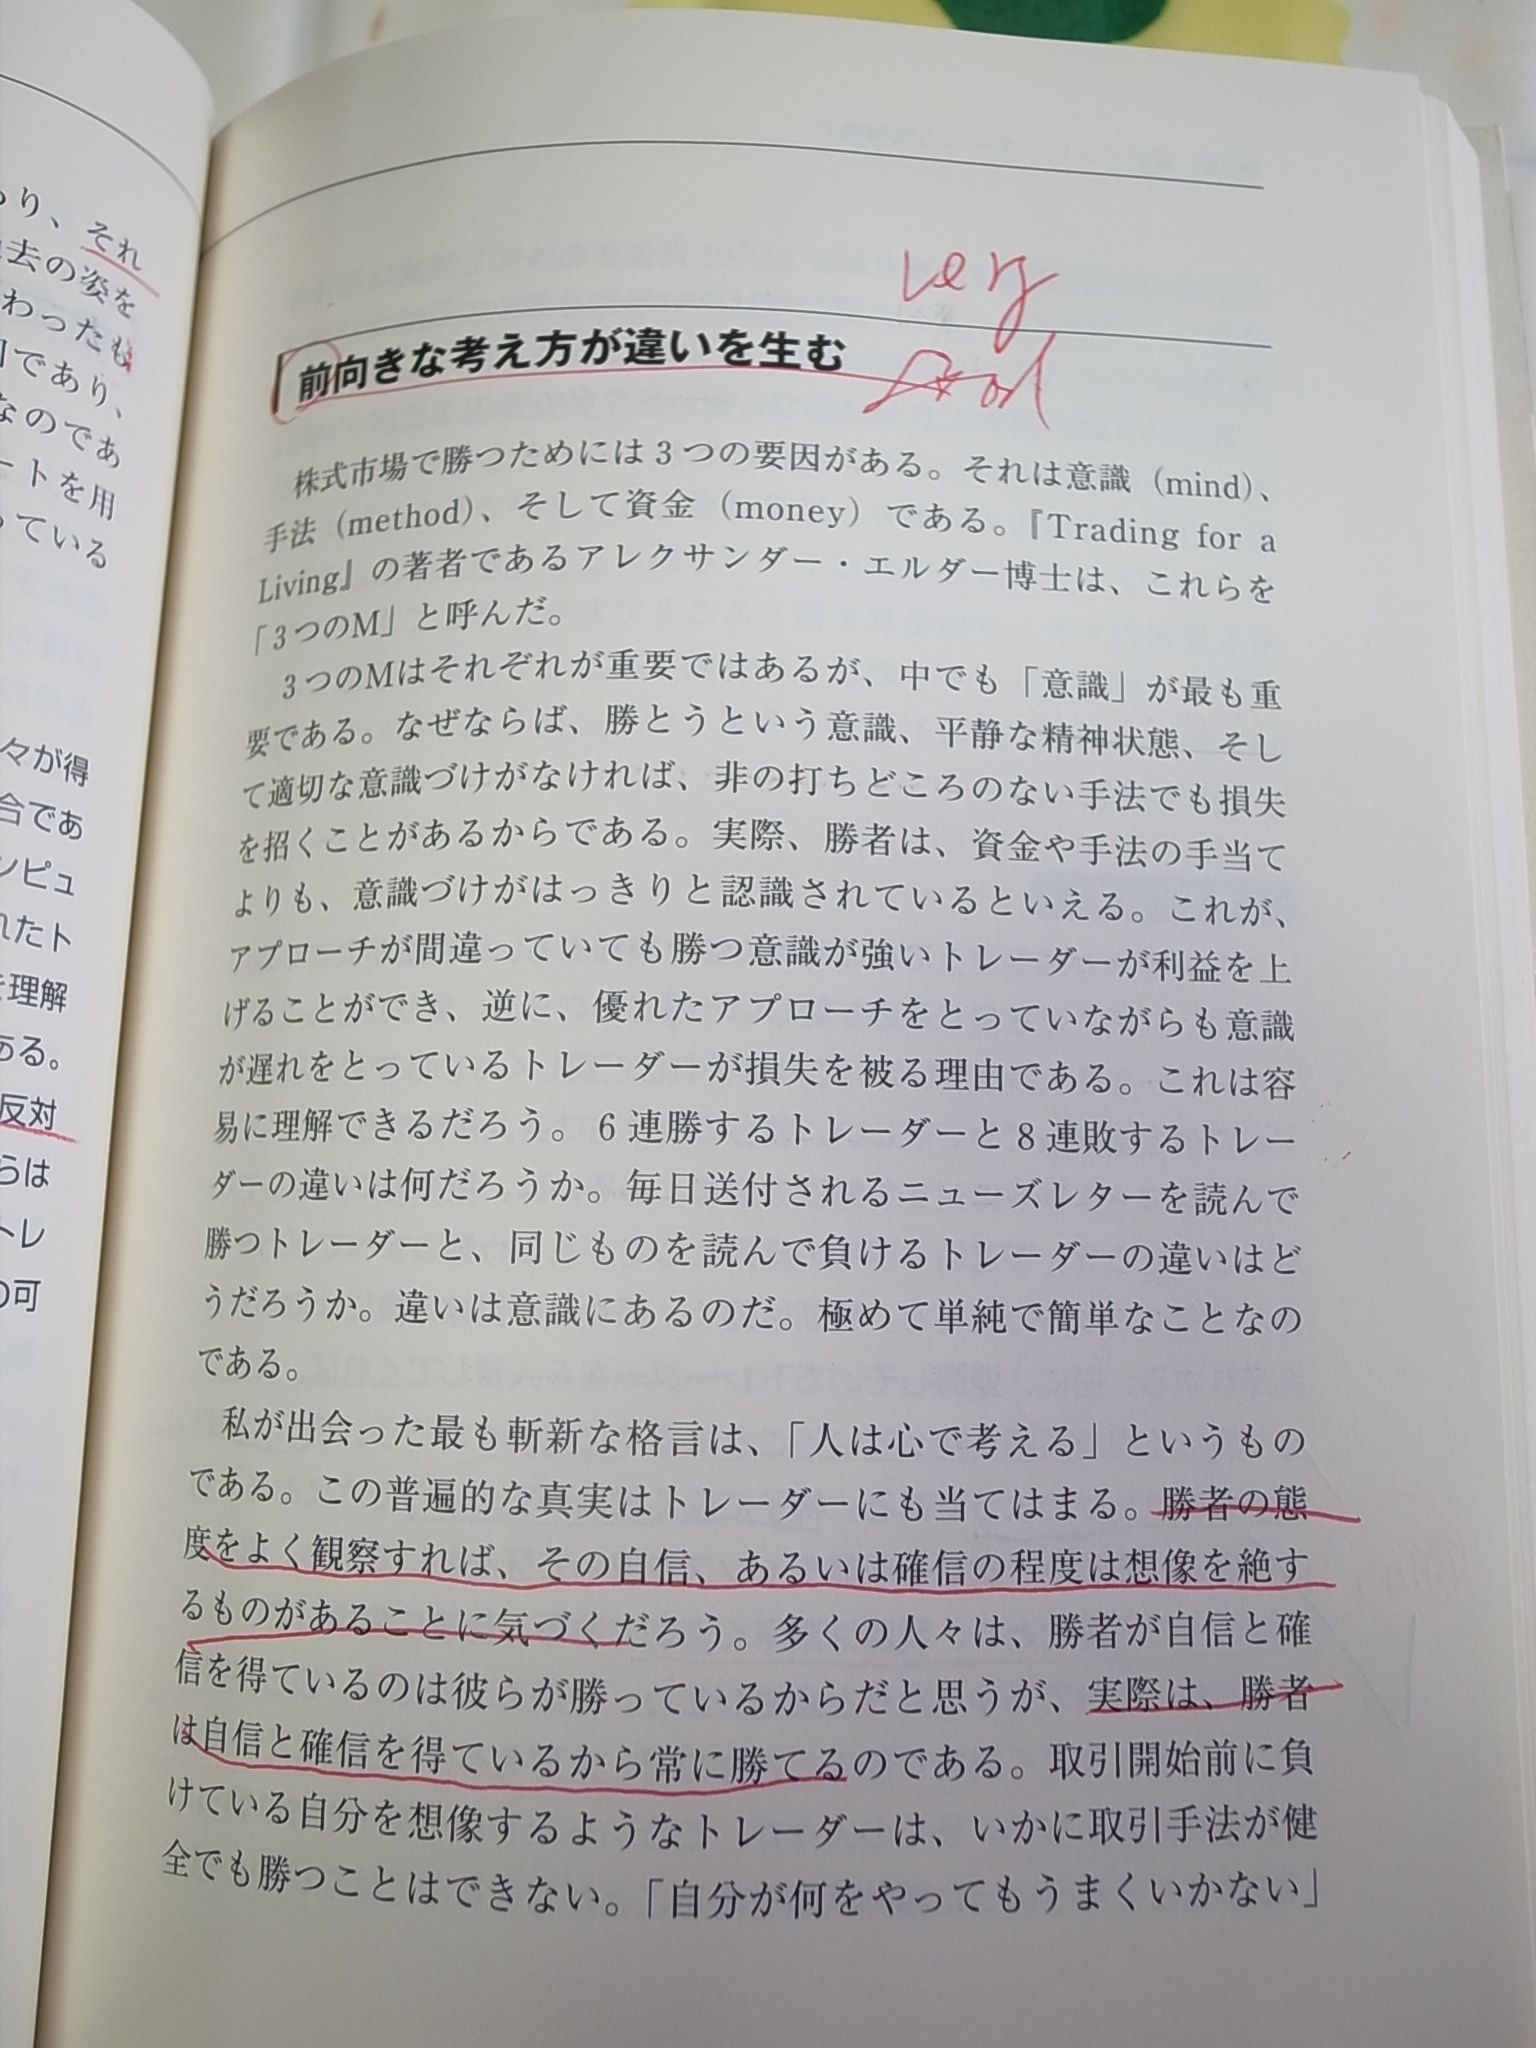 り、それ
去の姿を
わったも
であり、
なのであ
ートを用
っている
々が得
合であ
ンピュ
れたト
理解
ある。
反対
らは
トレ
の可
very
good
前向きな考え方が違いを生む
株式市場で勝つためには3つの要因がある。それは意識（mind）、
手法（method）、そして資金（money）である。『Trading for a
Living』の著者であるアレクサンダー・エルダー博士は、これらを
「3つのM」と呼んだ。
3つのMはそれぞれが重要ではあるが、中でも「意識」が最も重
要である。なぜならば、勝とうという意識、平静な精神状態、そし
て適切な意識づけがなければ、非の打ちどころのない手法でも損失
を招くことがあるからである。実際、勝者は、資金や手法の手当て
よりも、意識づけがはっきりと認識されているといえる。これが、
アプローチが間違っていても勝つ意識が強いトレーダーが利益を上
げることができ、逆に、優れたアプローチをとっていながらも意識
が遅れをとっているトレーダーが損失を被る理由である。これは容
易に理解できるだろう。6連勝するトレーダーと8連敗するトレー
ダーの違いは何だろうか。毎日送付されるニューズレターを読んで
勝つトレーダーと、同じものを読んで負けるトレーダーの違いはど
うだろうか。違いは意識にあるのだ。極めて単純で簡単なことなの
である。
私が出会った最も斬新な格言は、「人は心で考える」というもの
である。この普遍的な真実はトレーダーにも当てはまる。勝者の態
度をよく観察すれば、その自信、あるいは確信の程度は想像を絶す
るものがあることに気づくだろう。多くの人々は、勝者が自信と確
信を得ているのは彼らが勝っているからだと思うが、実際は、勝者
は自信と確信を得ているから常に勝てるのである。取引開始前に負
けている自分を想像するようなトレーダーは、いかに取引手法が健
全でも勝つことはできない。「自分が何をやってもうまくいかない」